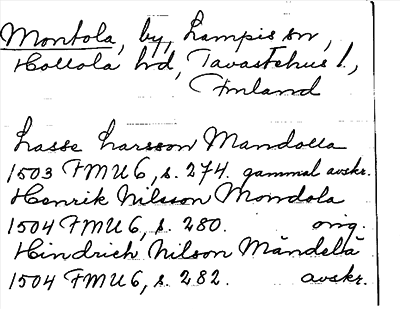 Montola, by, Lampis sn,
Hollola hd, Tavastehus l.,
Finland
Lasse Larsson Mandolla
1503 FMU 6, s. 274. gammal avskr.
Henrik Nilsson Mondola
1504 FMU 6, s. 280. orig.
Hindrich Nilson Måndelä
1504 FMU 6, s. 282. avskr.